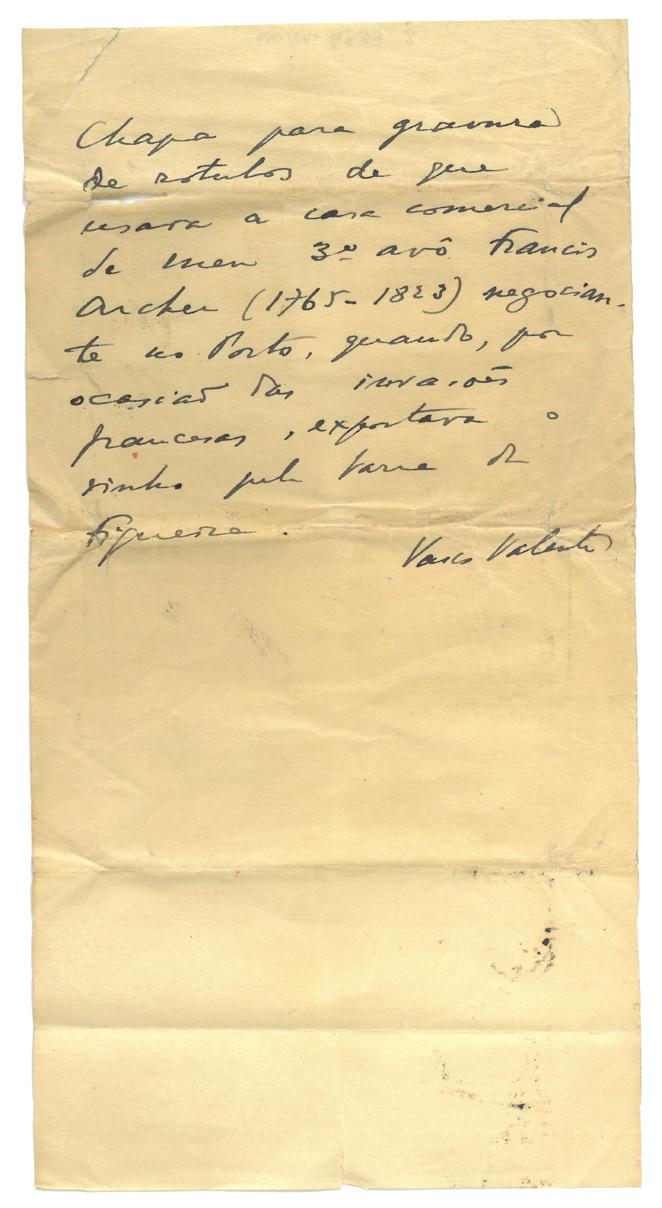 Chapa para gravura
de rotulos de que
usara a casa comercial
de meu 3º avô Francis
Archer (1765-1823) negocian-
te no Porto, quando, por
ocasião das invasões
francesas, exportava o
vinho pela barra da
Figueira.
Vasco Valente